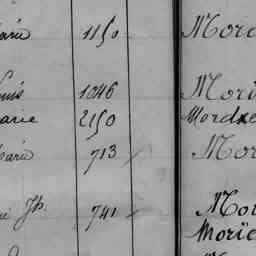 arie 1150 Mord
ouis 1046 Mori
arie 2150 Mordre
arie 713 Mor
Jh 741 Mor
Moric